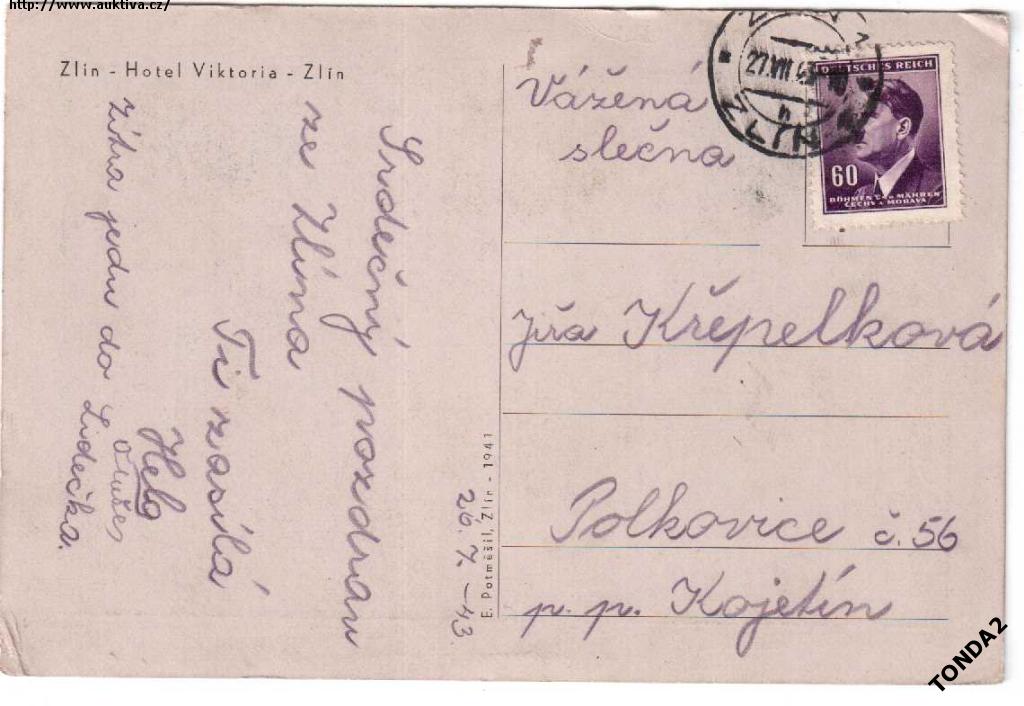 http://www.auktiva.cz/
Zlin - Hotel Viktoria - Zlín
Srdečný pozdrav
ze Zlína
Ti zasílá
Hela
Zítra jedu do Lidečka.
26. 7. -43
E. Potměšil, Zlín - 1941
Vážená
slečna
Jiřa Křepelková
Polkovice č. 56
p. p. Kojetín
ZLÍN
27.VII
DEUTSCHES REICH
60
BÖHMEN u. MÄHREN
ČECHY a MORAVA
TONDA2